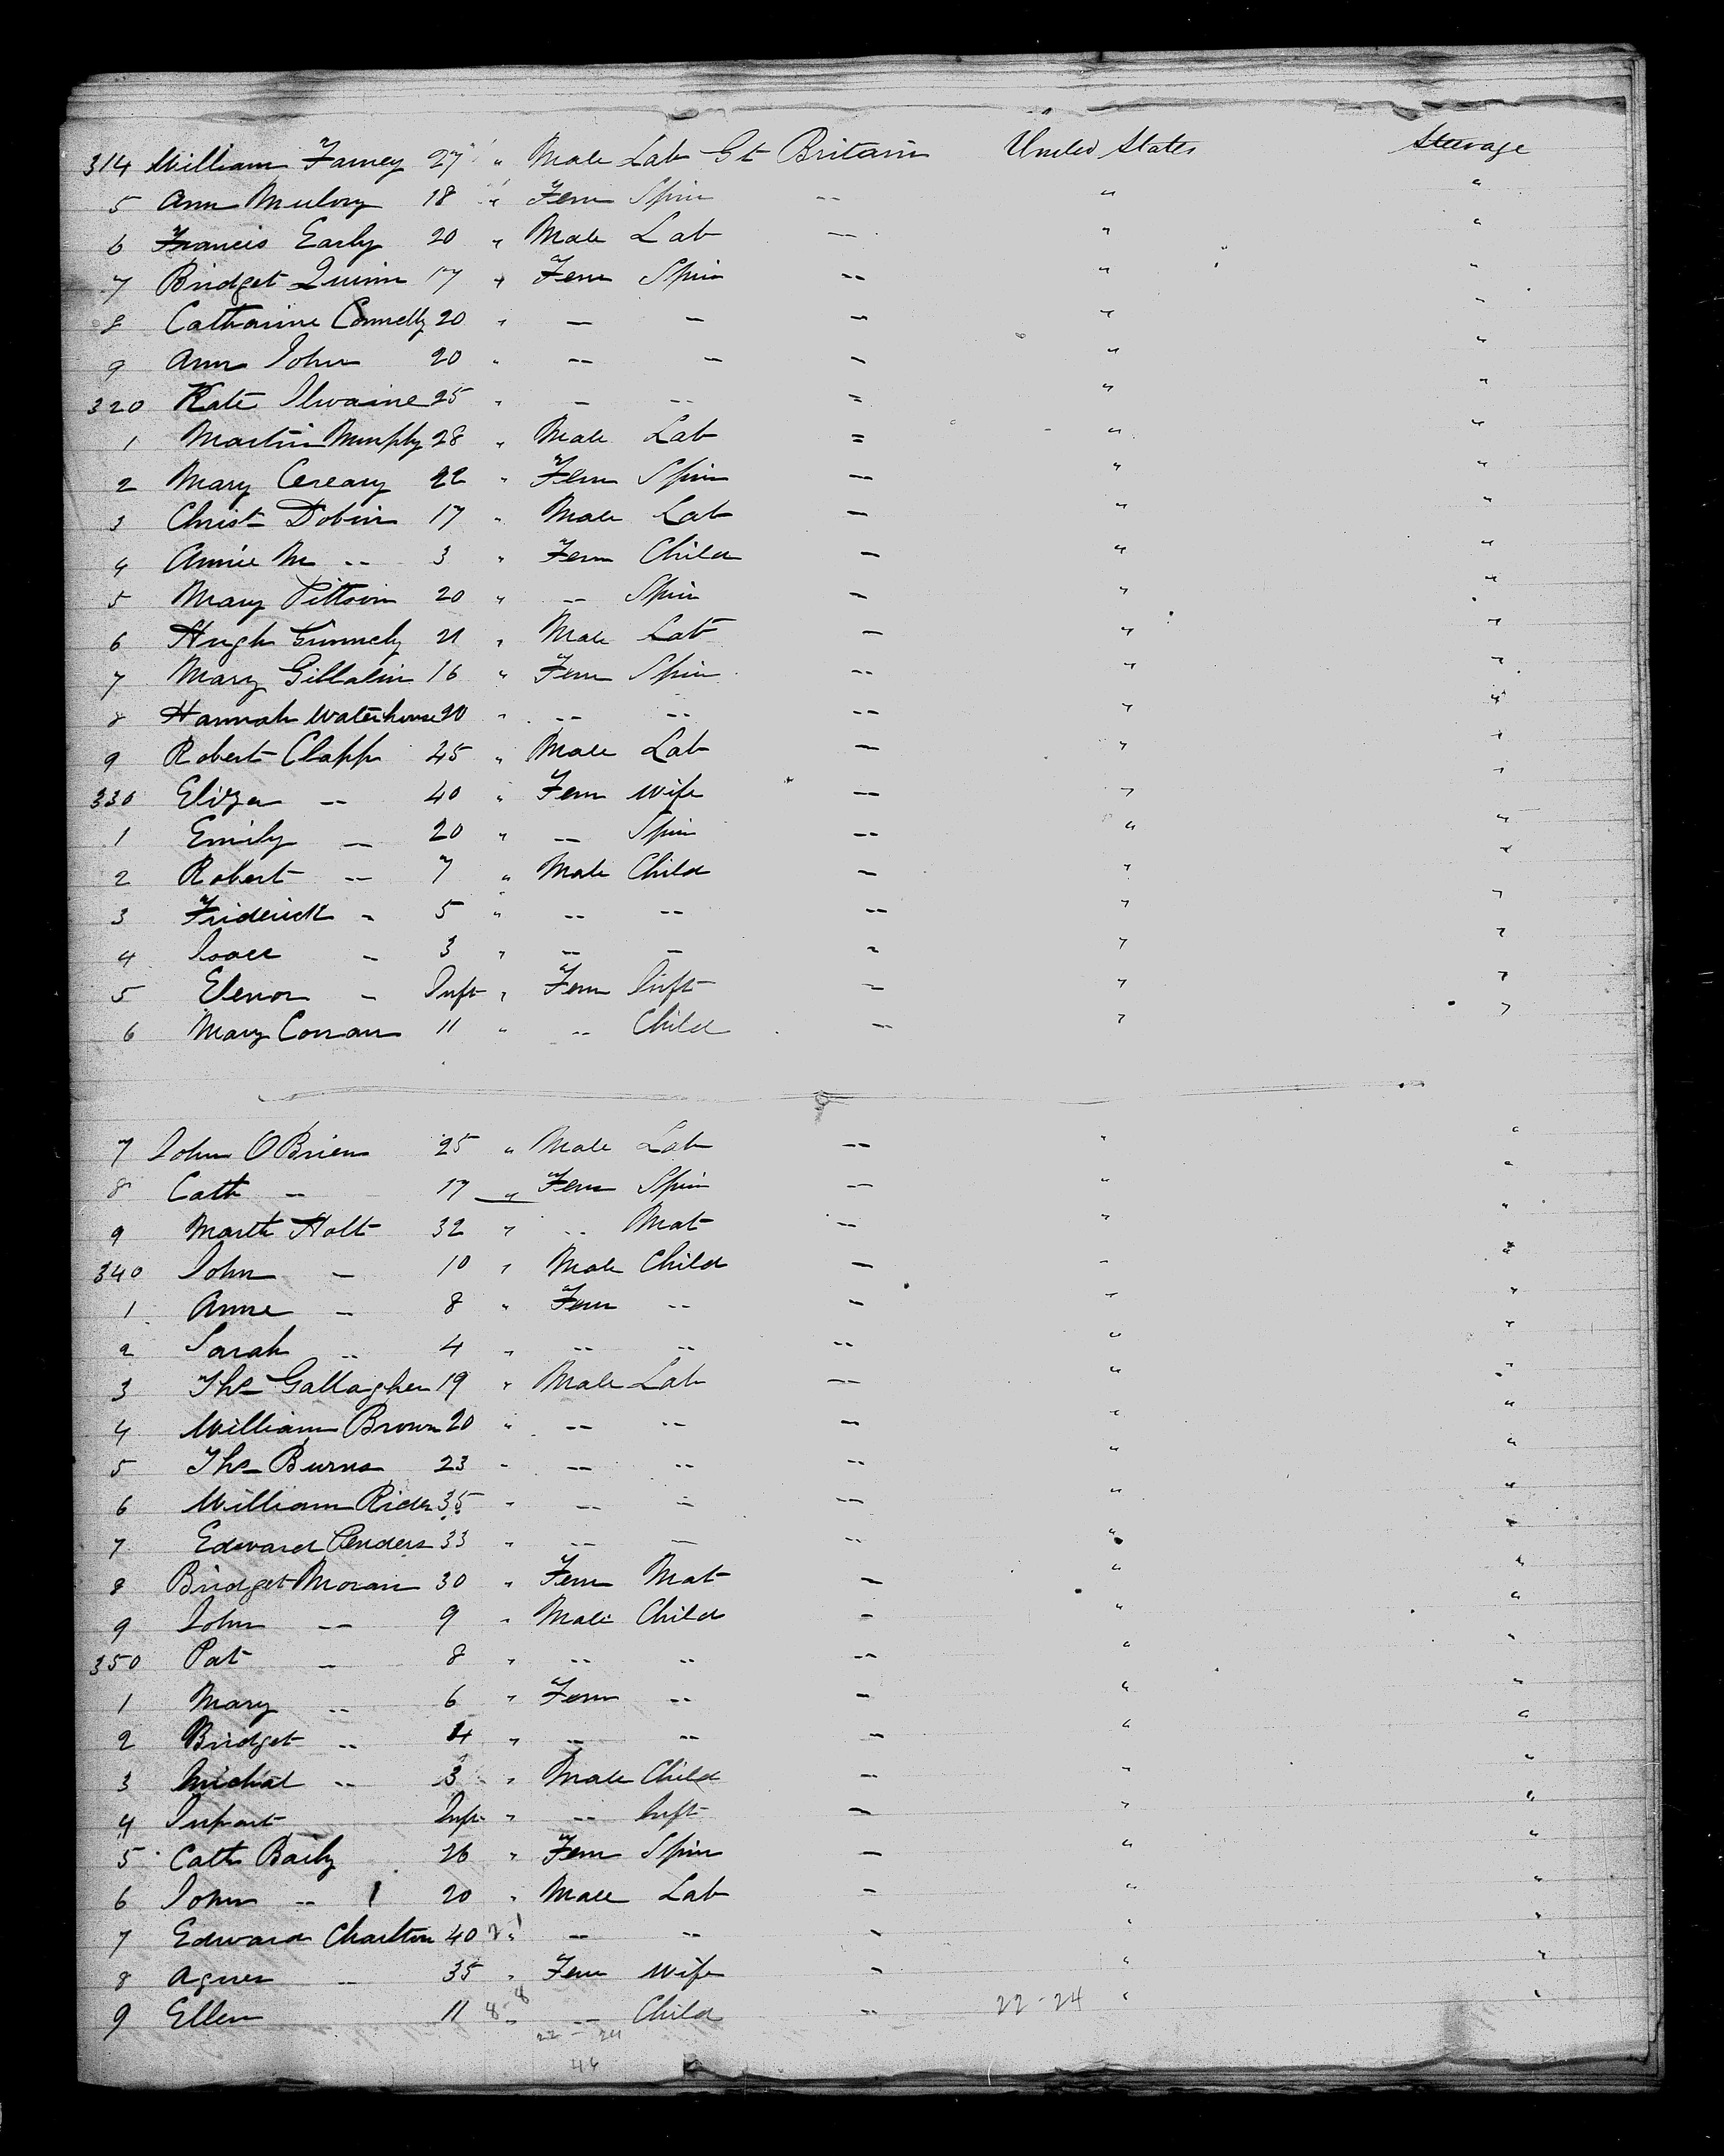 314 William Farney 27 " Male Lab Gt Britain United States Steerage
5 Ann Mulvy 18 " Fem Spin -- " "
6 Francis Early 20 " Male Lab -- " "
7 Bridget Quinn 17 " Fem Spin -- " "
8 Catharine Connelly 20 " -- -- -- " "
9 Ann John 20 " -- -- -- " "
320 Kate Ilwaine 25 " -- -- -- " "
1 Martin Murphy 28 " Male Lab -- " "
2 Mary 22 " Fem Spin -- " "
3 Christ Dobin 17 " Male Lab -- " "
4 Annie M -- 3 " Fem Child -- " "
5 Mary 20 " -- Spin -- " "
6 Hugh 21 " Male Lab -- " "
7 Mary Gillalin 16 " Fem Spin -- " "
8 Hannah Waterhouse 20 " -- -- -- " "
9 Robert Clapp 45 " Male Lab -- " "
330 Eliza -- 40 " Fem Wife -- " "
1 Emily -- 20 " -- Spin -- " "
2 Robert -- 7 " Male Child -- " "
3 Friderick -- 5 " -- -- -- " "
4 Isaac -- 3 " -- -- -- " "
5 Elenor -- Inft " Fem Inft -- " "
6 Mary Conran 11 " -- Child -- " "
7 John OBrien 25 " Male Lab -- " "
8 Cath -- 17 " Fem Spin -- " "
9 Marth Holt 32 " -- Mat -- " "
340 John -- 10 " Male Child -- " "
1 Anne -- 8 " Fem -- -- " "
2 Sarah -- 4 " -- -- -- " "
3 Ths Gallagher 19 " Male Lab -- " "
4 William Brown 20 " -- -- -- " "
5 Ths Burns 23 " -- -- -- " "
6 William Rider 35 " -- -- -- " "
7 Edward Penders 33 " -- -- -- " "
8 Bridget Moran 30 " Fem Mat -- " "
9 John -- 9 " Male Child -- " "
350 Pat -- 8 " -- -- -- " "
1 Mary -- 6 " Fem -- -- " "
2 Bridget -- 4 " -- -- -- " "
3 Michal -- 3 " Male Child -- " "
4 Infant Inft " -- Inft -- " "
5 Cath Baily 26 " Fem Spin -- " "
6 John -- 20 " Male Lab -- " "
7 Edward Charlton 40 " -- -- -- " "
8 Agnes -- 35 " Fem Wife -- " "
9 Ellen 11 8-8 " -- Child -- 22-24 " "
22-24
46